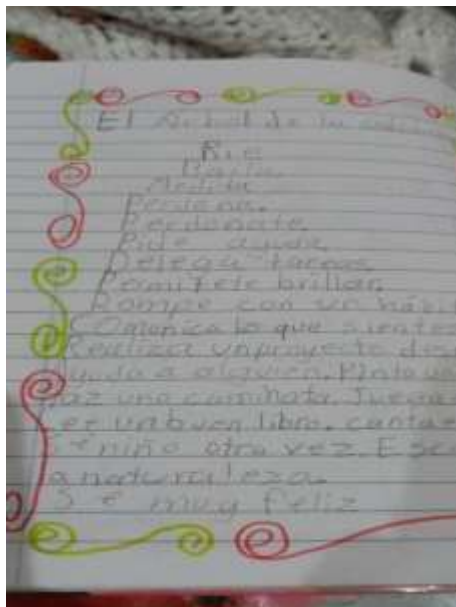 El Arbol de la
Rie
Baila
Medita
Perdona.
Perdonate.
Pide ayuda
Delega tareas
Permitete brillar.
Rompe con un
Comunica lo que sientes
Realiza un proyecto
Ayuda a alguien. Pinta
Haz una caminata. Juega
Lee un buen libro. canta
Sé niño otra vez.
la naturaleza.
Sé muy feliz